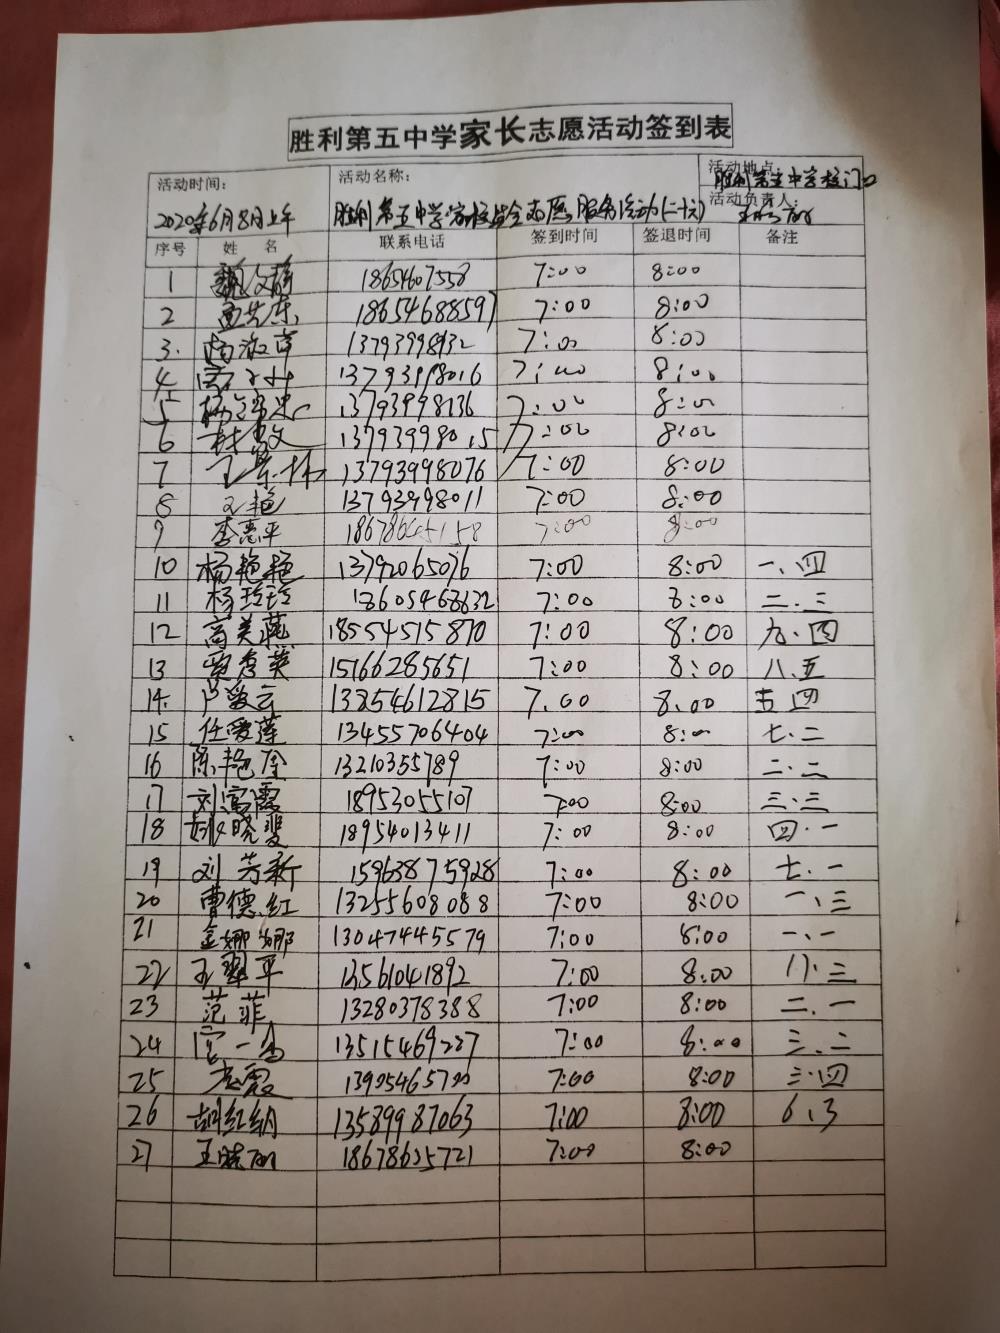 胜利第五中学家长志愿活动签到表
活动时间： 活动名称： 活动地点：
2020年6月8日上午 胜利第五中学家校安全志愿服务活动(二十六) 胜利第五中学校门口
活动负责人：
序号 姓名 联系电话 签到时间 签退时间 备注
1 18654607558 7:00 8:00
2 18654688597 7:00 8:00
3. 13793998932 7:00 8:00
4 7:00 8:00
5 13793998136 7:00 8:00
6 杜良文 13793998015 7:00 8:00
7 13793998076 7:00 8:00
8 13793998011 7:00 8:00
9 李惠平 18678645158 7:00 8:00
10 杨艳艳 13792065076 7:00 8:00 一、四
11 杨玲玲 18605468632 7:00 8:00 二.三
12 高美燕 18554515870 7:00 8:00 九.四
13 贾秀英 15166285651 7:00 8:00 八.五
14. 卢爱云 13854612815 7.00 8.00 五四
15 任爱莲 13455706404 7:00 8:00 七.二
16 陈艳 13210355789 7:00 8:00 二.二
17 刘富霞 18953055107 7:00 8:00 三.三
18 姚晓斐 18954013411 7:00 8:00 四.一
19 刘芳新 15963875928 7:00 8:00 七.一
20 曹德红 13255608088 7:00 8:00 一、三
21 金娜娜 13047445579 7:00 8:00 一、一
22 王翠平 13561041892 7:00 8:00 八.三
23 范菲 13280378388 7:00 8:00 二.一
24 13515469227 7:00 8:00 三.二
25 7:00 8:00 三.四
26 胡红娟 13589987063 7:00 8:00 6.3
27 王晓丽 18678625721 7:00 8:00